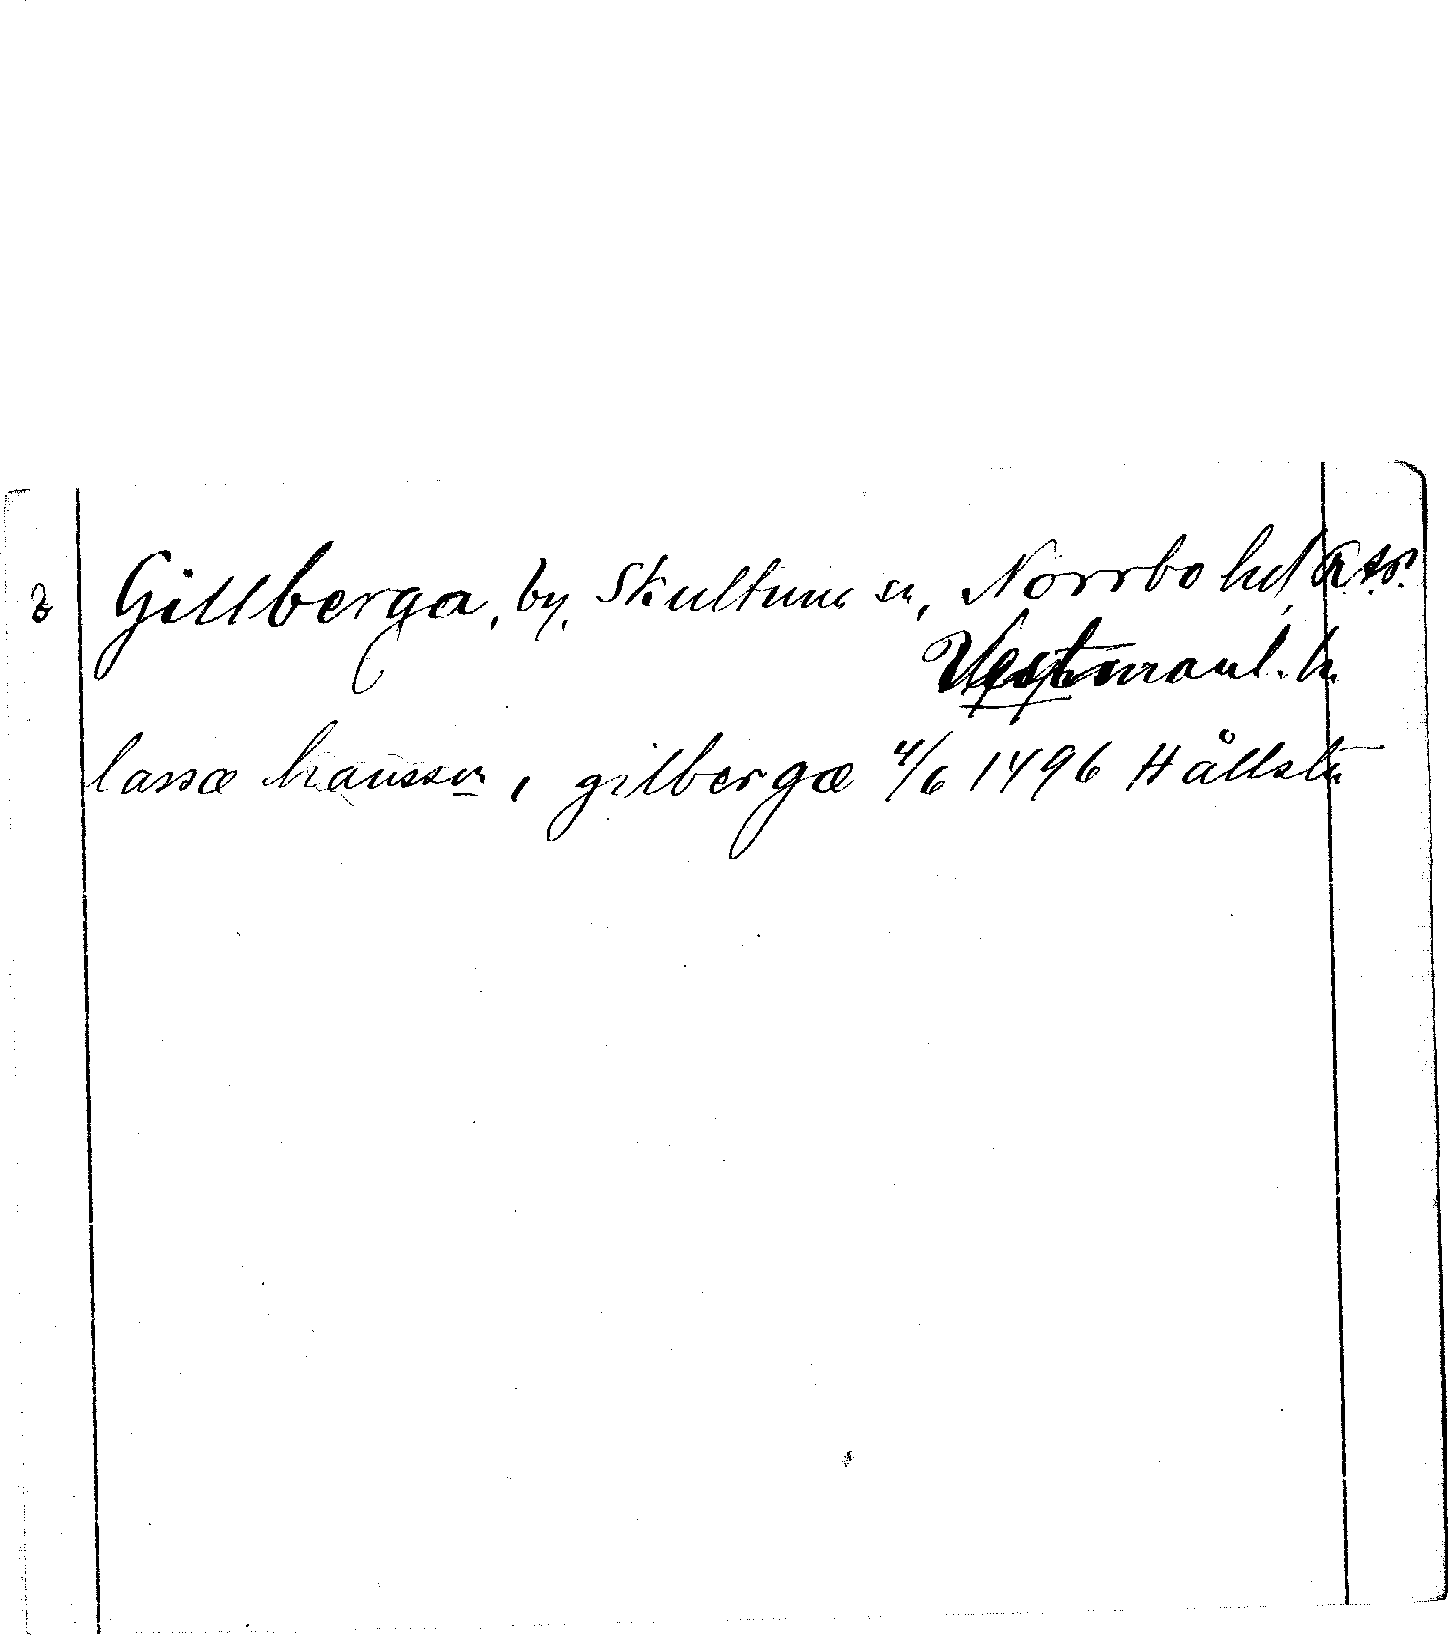 Gillberga, by, Skultuna sn, Norrbo hd,
Vestmanl. l.
lassæ hansson, gilbergæ 4/6 1496 Hållsta